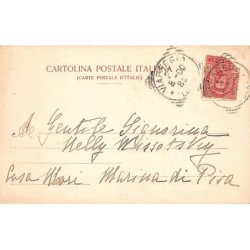 CARTOLINA POSTALE ITALIANA
(CARTE POSTALE D'ITALIE)
VIAREGGIO
A Gentile Signorina
Nelly Wissotsky
Casa Mori Marina di Pisa